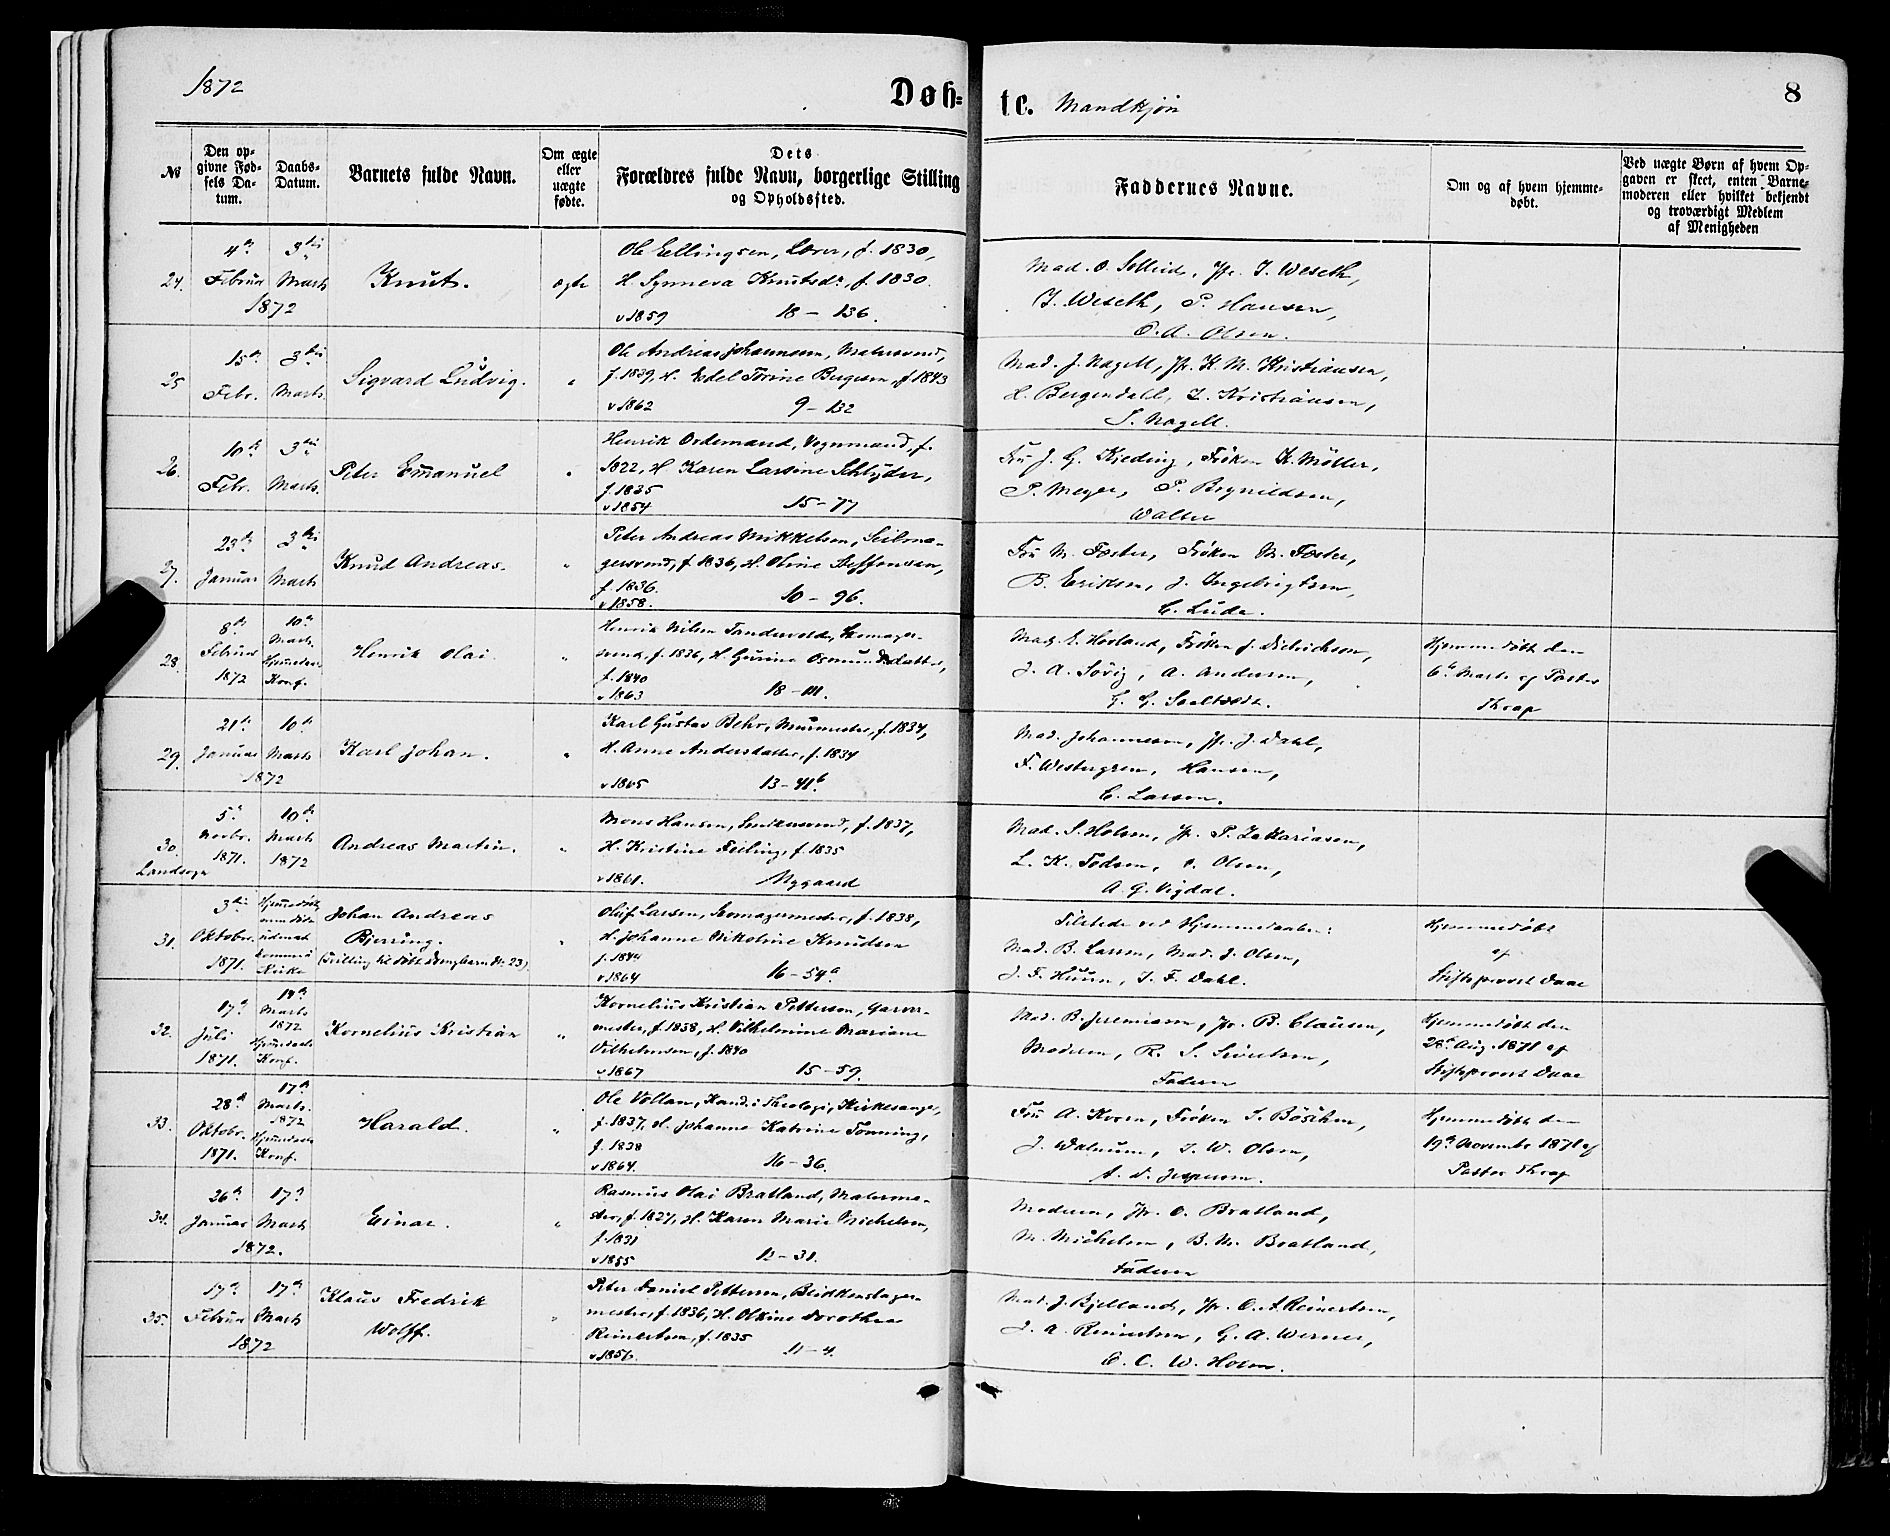 1872
Døb=
te. Mandkjøn
8
№
Den op=
givne Fød=
sels Da=
tum.
Daabs=
Datum.
Barnets fulde Navn.
Om ægte
eller
uægte
fødte.
Dets
Forældres fulde Navn, borgerlige Stilling
og Opholdssted.
Faddernes Navne.
Om og af hvem hjemme=
døbt.
Ved uægte Børn af hvem Op=
gaven er skeet, enten Barne=
moderen eller hvilket bekjendt
og troværdigt Medlem
af Menigheden
24. 4de Februar 3die Marts 1872
Knut.
ægte
Ole Ellingsen, Lærer, f. 1830,
H. Synneva Knutsdr, f. 1830.
v 1859 18 – 136.
Mad. O. Selleid, Jfr. I. Weseth,
I. Weseth, P. Hansen,
O. A. Olsen.
25 15de Febr. 3die Marts
Sigvard Ludvig.
"
Ole Andreas Johannesen, Malersvend,
f. 1839, H. Edel Torine Bergesen, f 1843
v 1862 9 – 132
Mad. J. Nagell, Jfr. K. M. Kristiansen,
H. Bergendahl, L. Kristiansen,
S. Nagell.
26. 10de Febr. 3die Marts.
Peter Emanuel
"
Henrik Ordemand, Vognmand, f.
1822, H Karen Larsine Schlyder,
f. 1835
v 1854 15 – 77
Fru J. G. Kjeding, Frøken K. Møller,
P. Meyer, P. Brynildsen,
Walter
27. 23de Januar 3die Marts
Knud Andreas.
"
Peter Andreas Mikkelsen, Seilma-
gersvend, f 1836, H. Oline Steffensen,
f. 1836.
v 1858. 10 – 96.
Fru M. Foster, Frøken M. Foster,
B. Eriksen, J. Ingebrigtsen,
C. Lude.
28. 8de Februar 1872 10de Marts. Hjemmedaab Konf.
Henrik Olai.
"
Henrik Nilsen Tandervold, Skomager-
svend, f. 1836, H. Gurine Osmundsdatter,
f. 1840
v 1863 18 – 111.
Mad. E. Hovland, Frøken J. Didrichsen,
J. A. Søvig, A. Andersen,
G. G. Saltvedt.
Hjemmedøbt den
6te Marts af Pastor
Thrap
29. 21de Januar 10de Marts 1872
Karl Johan.
"
Karl Gustav Behr, Murmester, f. 1834,
H. Anne Andersdatter, f. 1834
v 1865 13 – 41b
Mad. Johannesen, Jfr. J. Dahl,
F. Westergren, Hansen,
C. Larsen.
30. Landsogn 5te Novbr. 1871. 10de Marts 1872
Andreas Martin.
"
Mons Hansen, Snedkersvend, f. 1837,
H. Kristine Feiling, f. 1835
v 1861. Nygaard
Mad. S. Holsen, Jfr. P. Zakariasen,
L. K. Todsen, O. Olsen,
A. G. Vigdal.
31. 3die Oktobr. 1871. Hjemmedøbt men død udenat komme i Kirke
Johan Andreas
Bjerring.
(Tvilling til døbt Drengebarn No 23)
"
Oluf Larsen, Skomagermester, f. 1838,
H. Johanne Nikoline Knudsen
f. 1844
v 1864 16 – 54a
Tilstede ved Hjemmedaaben:
Mad. B. Larsen, Mad. J. Olsen,
J. F. Huun, I. F. Dahl.
Hjemmedøbt
af
Stiftsprovst Daae
32. 17de Juli 1871. 14de Marts 1872 Hjemmedaab Konf.
Kornelius Kristian
"
Kornelius Kristian Pettersen, Garver-
mester, f. 1838, H. Vilhelmine Mariane
Vilhelmsen, f. 1840
v 1867 15 – 59.
Mad. B. Jeremiasen, Jfr. B. Clausen,
Moderen, R. S. Sivertsen,
Faderen
Hjemmedøbt den
28de Aug. 1871 af
Stiftsprovst Daae
33. 28de Oktobr. 1871. 17de Marts. 1872 Hjemmedaab Konf.
Harald.
"
Ole Vollan, Kand. i Theologi, Kirkesanger,
f. 1837, H. Johanne Katrine Tønning,
f. 1838
v 1864. 16 – 36.
Fru A. Kroen, Frøken S. Bøschen,
J. Walnum, I. W. Olsen,
A. D. Jespersen.
Hjemmedøbt den
19de November 1871 af
Pastor Thrap
34. 26de Januar 17de Marts 1872.
Einar.
"
Rasmus Olai Bratland, Malerme-
ster, f. 1827, H. Karen Marie Michelsen,
f. 1831
v 1855 12 – 31.
Moderen, Jfr. O. Bratland,
M. Michelsen, B. M. Bratland,
Faderen
35. 17de Februar 17de Marts 1872
Klaus Fredrik
Wolff.
"
Peter Daniel Pettersen, Blikkenslager-
mester, f. 1836, H. Oline Dorothea
Reinertsen, f. 1835
v 1856. 11 – 4.
Mad. J. Bjelland, Jfr. O. A. Reinertsen,
J. A. Reinertsen, G. A. Werner,
C. C. W. Holsen.